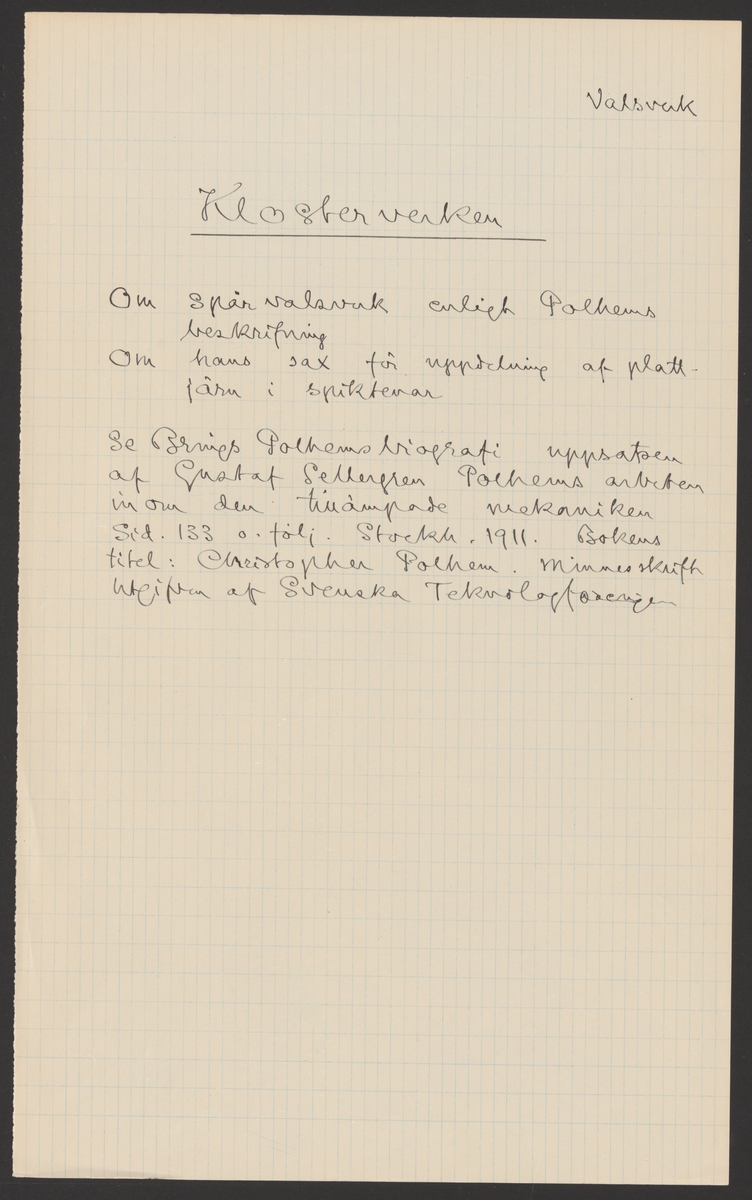 Valsverk
Klosterverken
Om spårvalsverk enligt Polhems
beskrifning
Om hans sax för uppdelning af platt-
järn i spiktenar
Se Brings Polhemsbiografi uppsatsen
af Gustaf Sellergren Polhems arbeten
inom den tillämpade mekaniken
Sid. 133 o. följ. Stockh. 1911. Bokens
titel: Christopher Polhem. Minnesskrift
utgifven af Svenska Teknologföreningen